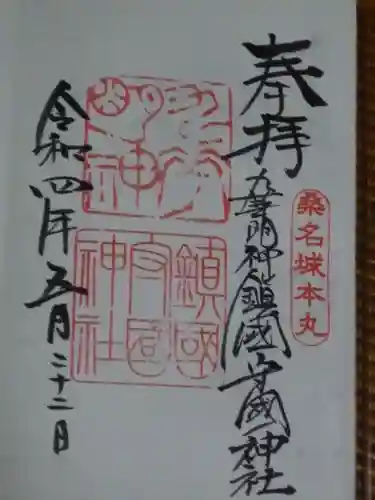 奉拝
桑名城本丸
九華明神鎮國守國神社
九華明神
鎮國守国神社
令和四年五月二十二日